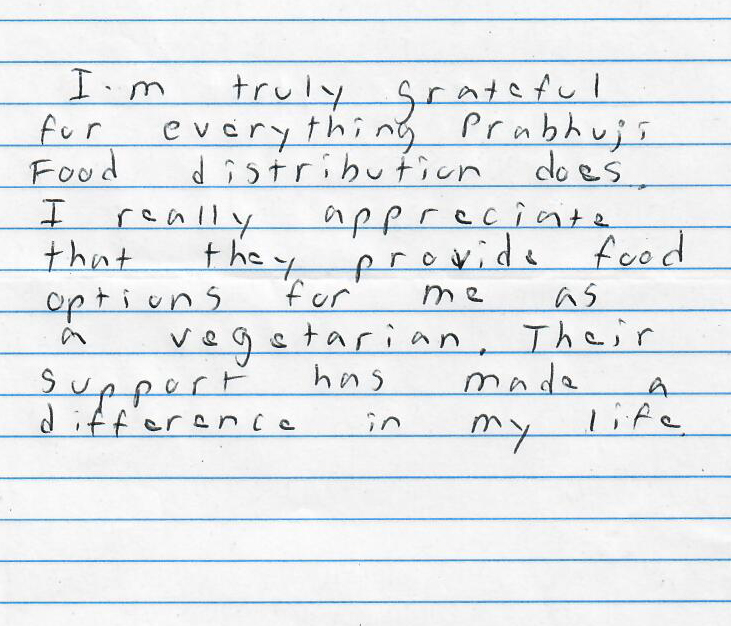 I'm truly grateful
for everything Prabhuji
Food distribution does.
I really appreciate
that they provide food
options for me as
a vegetarian. Their
support has made a
difference in my life.